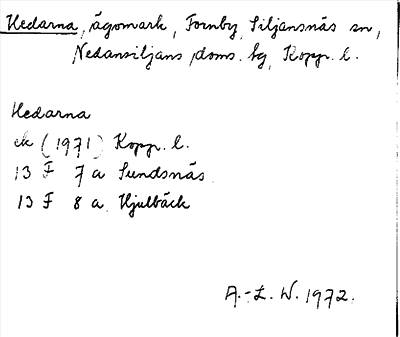 Hedarna, ägomark, Fornby, Siljansnäs sn,
Nedansiljans doms. bg, Kopp. l.
Hedarna
ek (1971) Kopp. l.
13 F 7 a Sundsnäs
13 F 8 a Hjulbäck
A.-L. W. 1972.